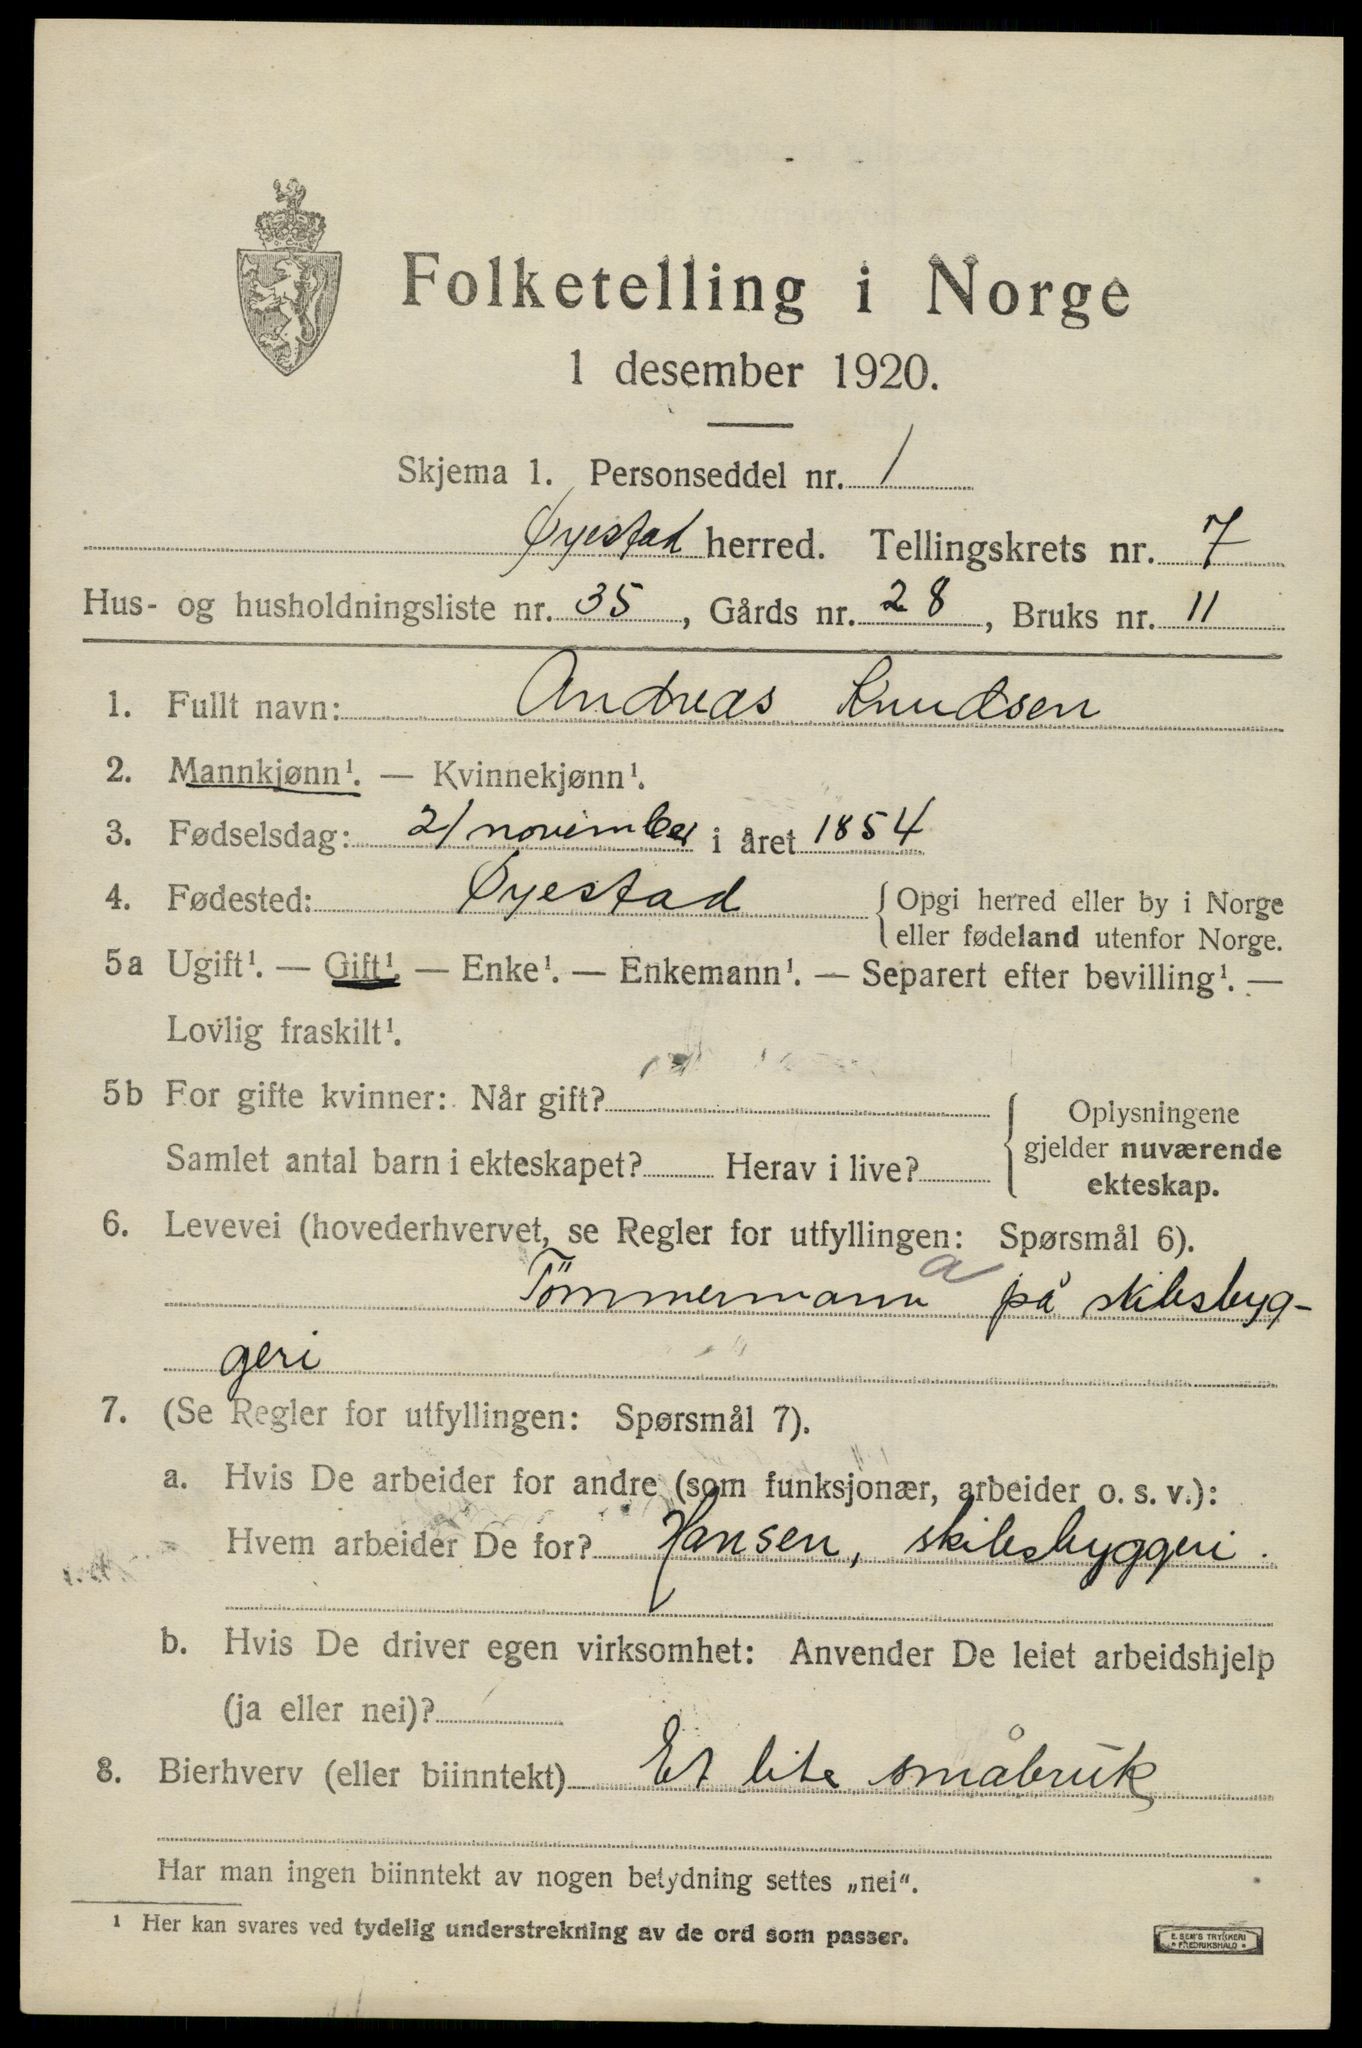 Folketelling i Norge
1 desember 1920.
Skjema 1. Personseddel nr. 1
Øyestad herred. Tellingskrets nr. 7
Hus- og husholdningsliste nr. 35, Gårds nr. 28, Bruks nr. 11
1. Fullt navn: Andreas Knudsen
2. Mannkjønn¹. — Kvinnekjønn¹.
3. Fødselsdag: 21 november i året 1854
4. Fødested: Øyestad { Opgi herred eller by i Norge
eller fødeland utenfor Norge.
5a Ugift¹. — Gift¹. — Enke¹. — Enkemann¹. — Separert efter bevilling¹. —
Lovlig fraskilt¹.
5b For gifte kvinner: Når gift?
Samlet antal barn i ekteskapet? Herav i live?
Oplysningene
gjelder nuværende
ekteskap.
6. Levevei (hovederhvervet, se Regler for utfyllingen: Spørsmål 6).
a
Tömmermann på skibsbyg-
geri
7. (Se Regler for utfyllingen: Spørsmål 7).
a. Hvis De arbeider for andre (som funksjonær, arbeider o. s. v.):
Hvem arbeider De for? Hansen, skibsbyggeri.
b. Hvis De driver egen virksomhet: Anvender De leiet arbeidshjelp
(ja eller nei)?
8. Bierhverv (eller biinntekt) Et lite småbruk
Har man ingen biinntekt av nogen betydning settes „nei".
¹ Her kan svares ved tydelig understrekning av de ord som passer.
E. SEM'S TRYKKERI
* FREDRIKSHALD *